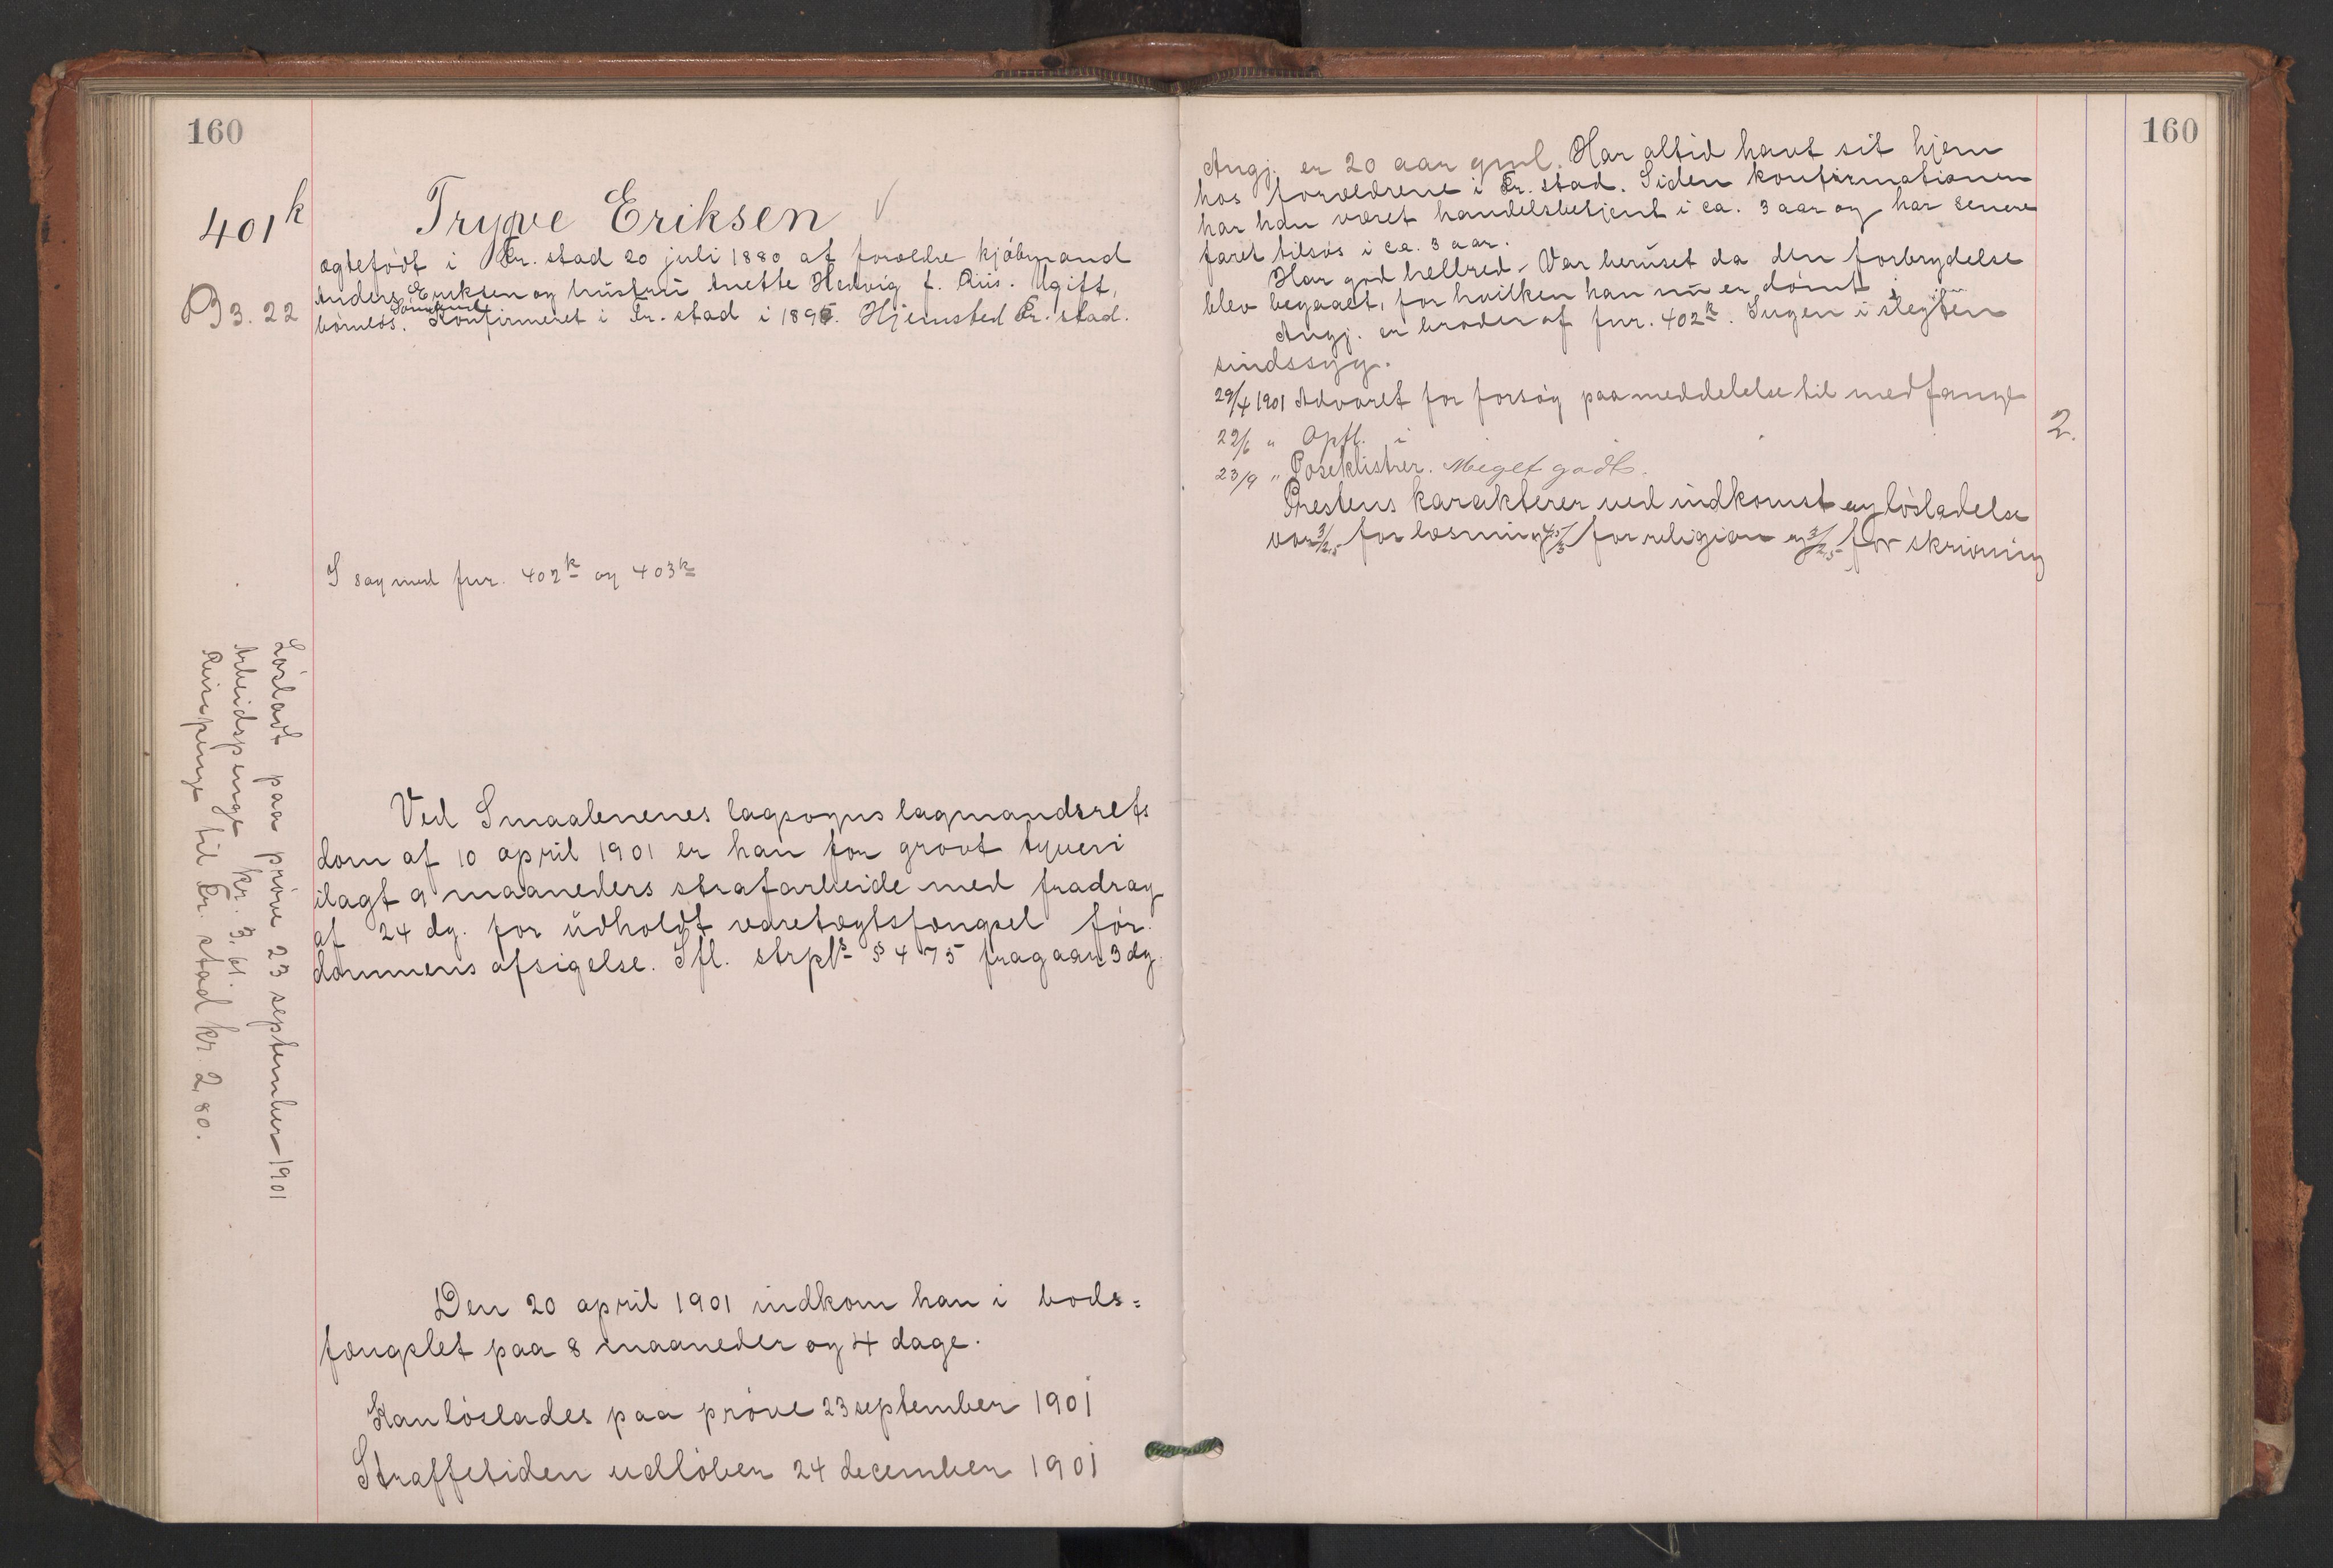 160
401k
Trygve Eriksen ✓
ægtefødt i Fr. stad 20 juli 1880 af forældre kjøbmand
Anders Eriksen og hustru Anette Hedvig f. Riis. Ugift,
børnløs. Sømand. Konfirmeret i Fr. stad i 1895. Hjemsted Fr. stad.
B 3. 22
I sag med fnr. 402k og 403k
Løsladt paa prøve 23 september 1901
Arbeidspenge kr. 3,61.
Reisepenge til Fr. stad kr. 2,80.
Ved Smaalenenes lagsogns lagmandsrets
dom af 10 april 1901 er han for grovt tyveri
ilagt 9 maaneders strafarbeide med fradrag
af 24 dg. for udholdt varetægtsfængsel før
dommens afsigelse. Ifl. strpl's § 475 fragaar 3 dg.
Den 20 april 1901 indkom han i bods=
fængslet paa 8 maaneder og 4 dage.
Kan løslades paa prøve 23 september 1901
Straffetiden udløber 24 december 1901
160
Angj. er 20 aar gml. Har altid havt sit hjem
hos forældrene i Fr. stad. Siden konfirmationen
har han været handelsbetjent i ca. 3 aar og har senere
faret tilsøs i ca. 3 aar.
Har god helbred. Var beruset da den forbrydelse
blev begaaet, for hvilken han nu er dømt.
Angj. er broder af fnr. 402k. Ingen i slegten
sindssyg.
29/4 1901 Advaret for forsøg paa meddelelse til medfange
22/6 " Opfl. i 2.
23/9 " Poseklistrer. Meget godt.
Prestens karakterer ved indkomst og løsladelse
var 3/2,5 for læsning 4,5/3 for religion og 3/2,5 for skrivning